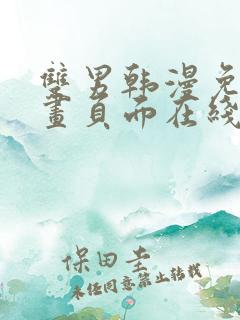 雙男韩漫免
畫頁面在綫
保田圭
未经同意禁止转载